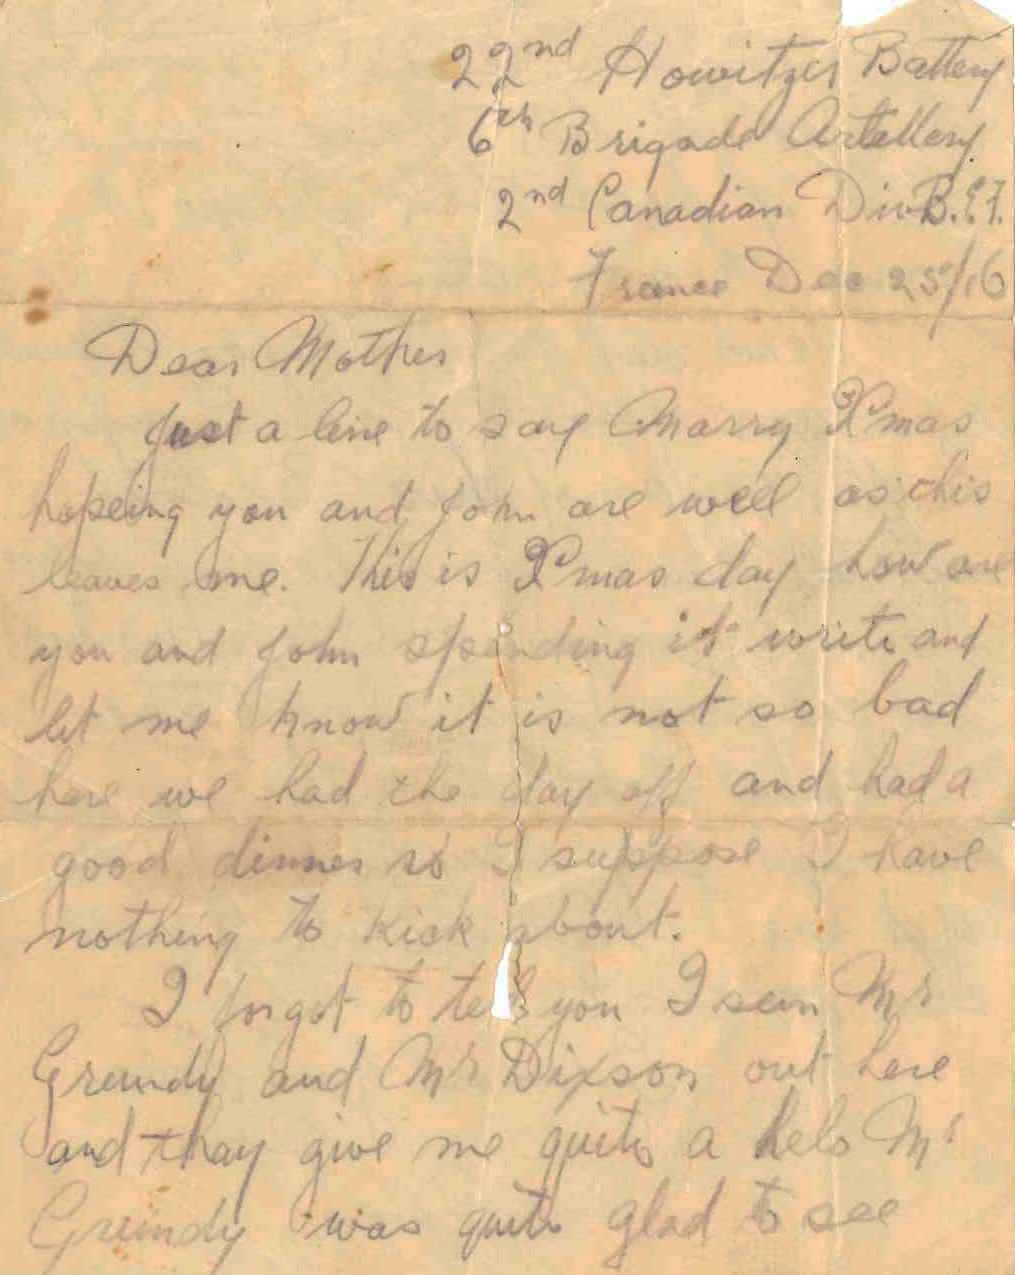 22nd Howitzer Battery
6th Brigade Artellery
2nd Canadian Div B.E.F.
France Dec 25/16
Dear Mother
Just a line to say Marry Xmas
hopeing you and John are well as this
leaves me. This is Xmas day how are
you and John spending it write and
let me know it is not so bad
here we had the day off and had a
good dinner so I suppose I have
nothing to kick about.
I forgot to tell you I seen Mr
Grundy and Mr Dixson out here
and thay give me quite a helo Mr
Grundy was quite glad to see